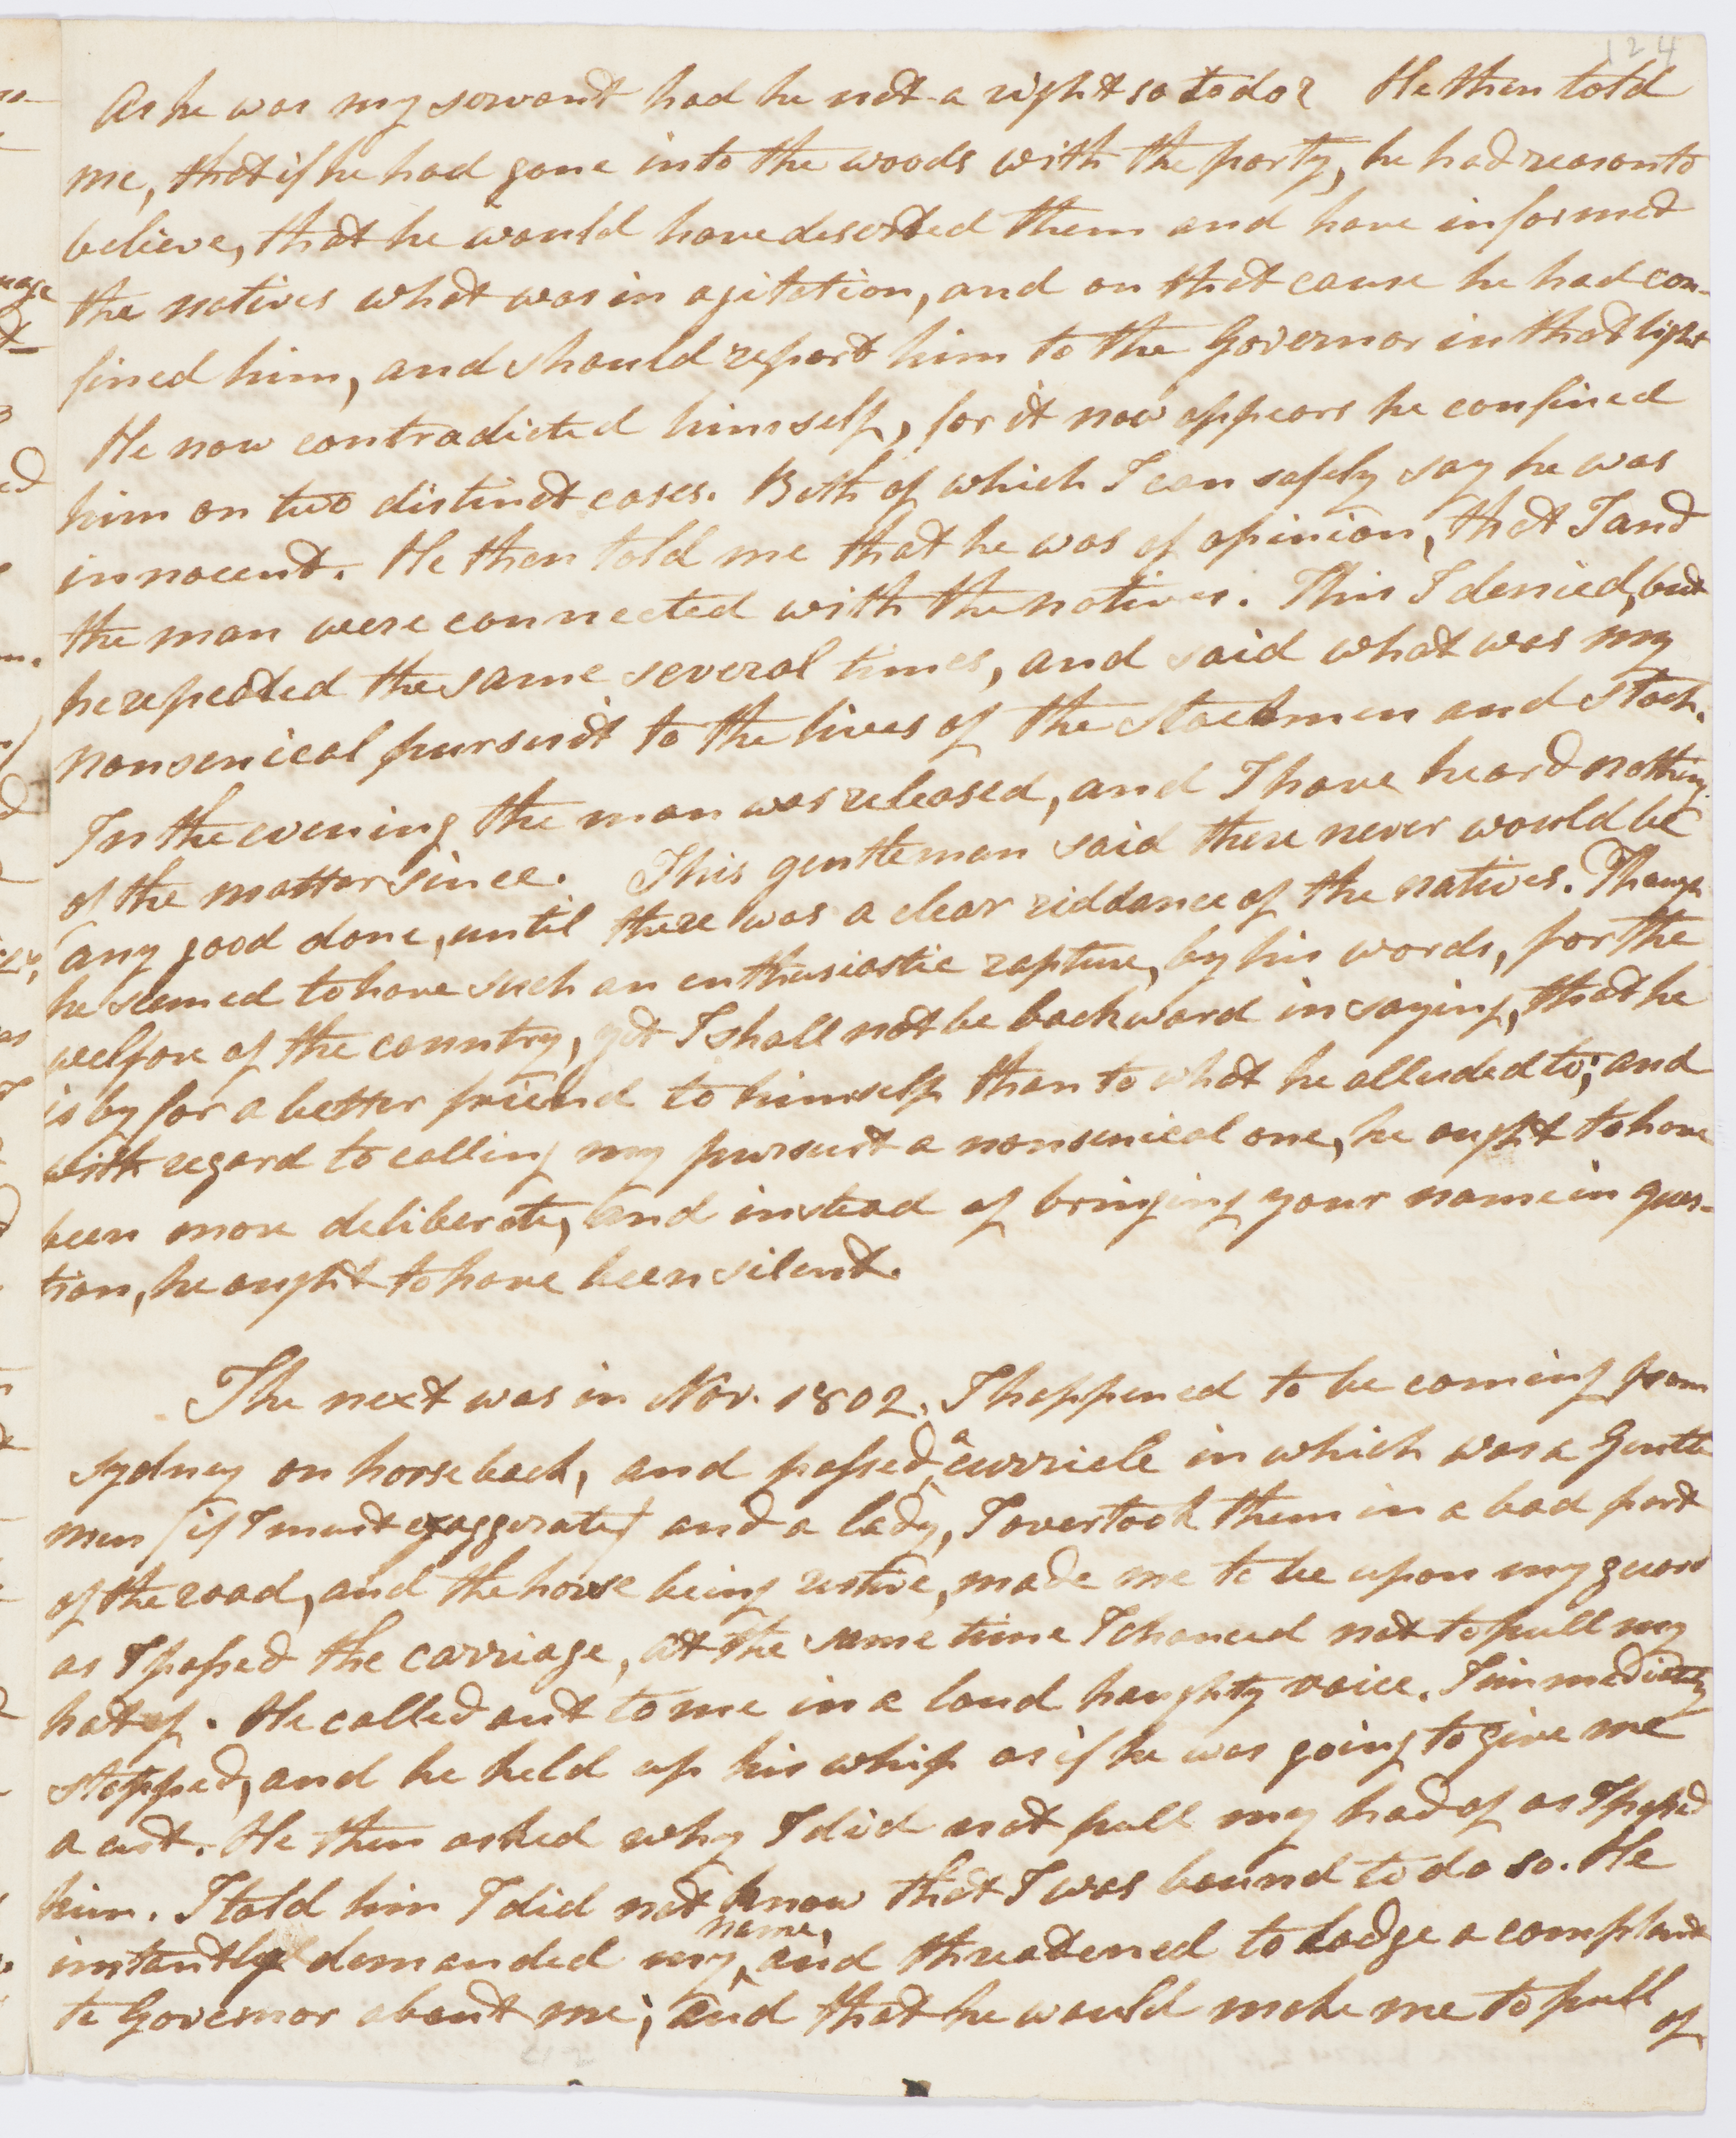 124
As he was my servant had he not a right so to do? He then told
me, that if he had gone into the woods with the party, he had reason to
believe, that he would have deserted them and have informed
the natives what was in agitation, and on that cause he had con-
fined him, and should report him to the Governor in that light
He now contradicted himself, for it now appears he confined
him on two distinct cases. Both of which I can safely say he was
innocent. He then told me that he was of opinion, that I and
the man were connected with the natives. This I denied, but
he repeated the same several times, and said what was my
nonsenical pursuit to the lives of the stockmen and stock.
In the evening the man was released, and I have heard nothing
of the matter since. This gentleman said there never would be
any good done, until there was a clear riddance of the natives. Though
he seemed to have such an enthusiastic rapture, by his words, for the
welfare of the country, yet I shall not be backward in saying, that he
is by far a better friend to himself than to what he alluded to; and
with regard to calling my pursuit a nonsenical one, he ought to have
been more deliberate, and instead of bringing your name in ques-
tion, he ought to have been silent.
The next was in Nov. 1802. I happened to be coming from
Sydney on horseback, and passed a curricle in which was a Gentle
man (if I must exaggerate) and a lady, I overtook them in a bad part
of the road, and the horse being restive, made me to be upon my guard
as I passed the carriage, at the same time I chanced not to pull my
hat of. He called out to me in a loud haughty voice. I immediately
stopped, and he held up his whip as if he was going to give me
a cut. He then asked why I did not pull my had of as I passed
him. I told him I did not know that I was bound to do so. He
instantly demanded my name, and threatened to lodge a complaint
to Governor about me; and that he would make me to pull of